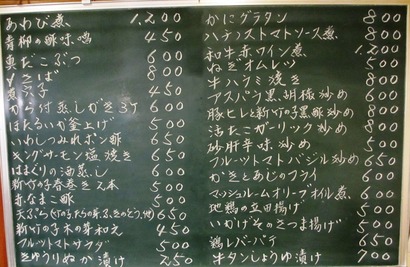 あわび煮 1,200
青柳の酢味噌 450
真だこぶつ 600
そば 800
煮ぶ子 450
から付蒸しがき3ケ 600
ほたるいか釜上げ 500
いわしつみれポン酢 650
キングサーモン塩焼き 650
はまぐりの酒蒸し 600
新竹の子春巻き2本 500
赤なまこ酢 500
650
新竹の子木の芽和え 450
フルーツトマトサラダ 500
きゅうりぬか漬け 250
かにグラタン 800
ハチノストマトソース煮 800
和牛赤ワイン煮 1,200
ねぎオムレツ 500
牛ハラミ焼き 800
アスパラ黒胡椒炒め 600
豚ヒレと新竹の子黒酢炒め 800
活たこガーリック炒め 800
砂肝辛味炒め 500
フルーツトマトバジル炒め 650
かきとあじのフライ 600
マッシュルームオリーブオイル煮 600
地鶏の立田揚げ 500
いかげそのさつま揚げ 500
鶏レバーパテ 650
牛タンしょうゆ漬け 700